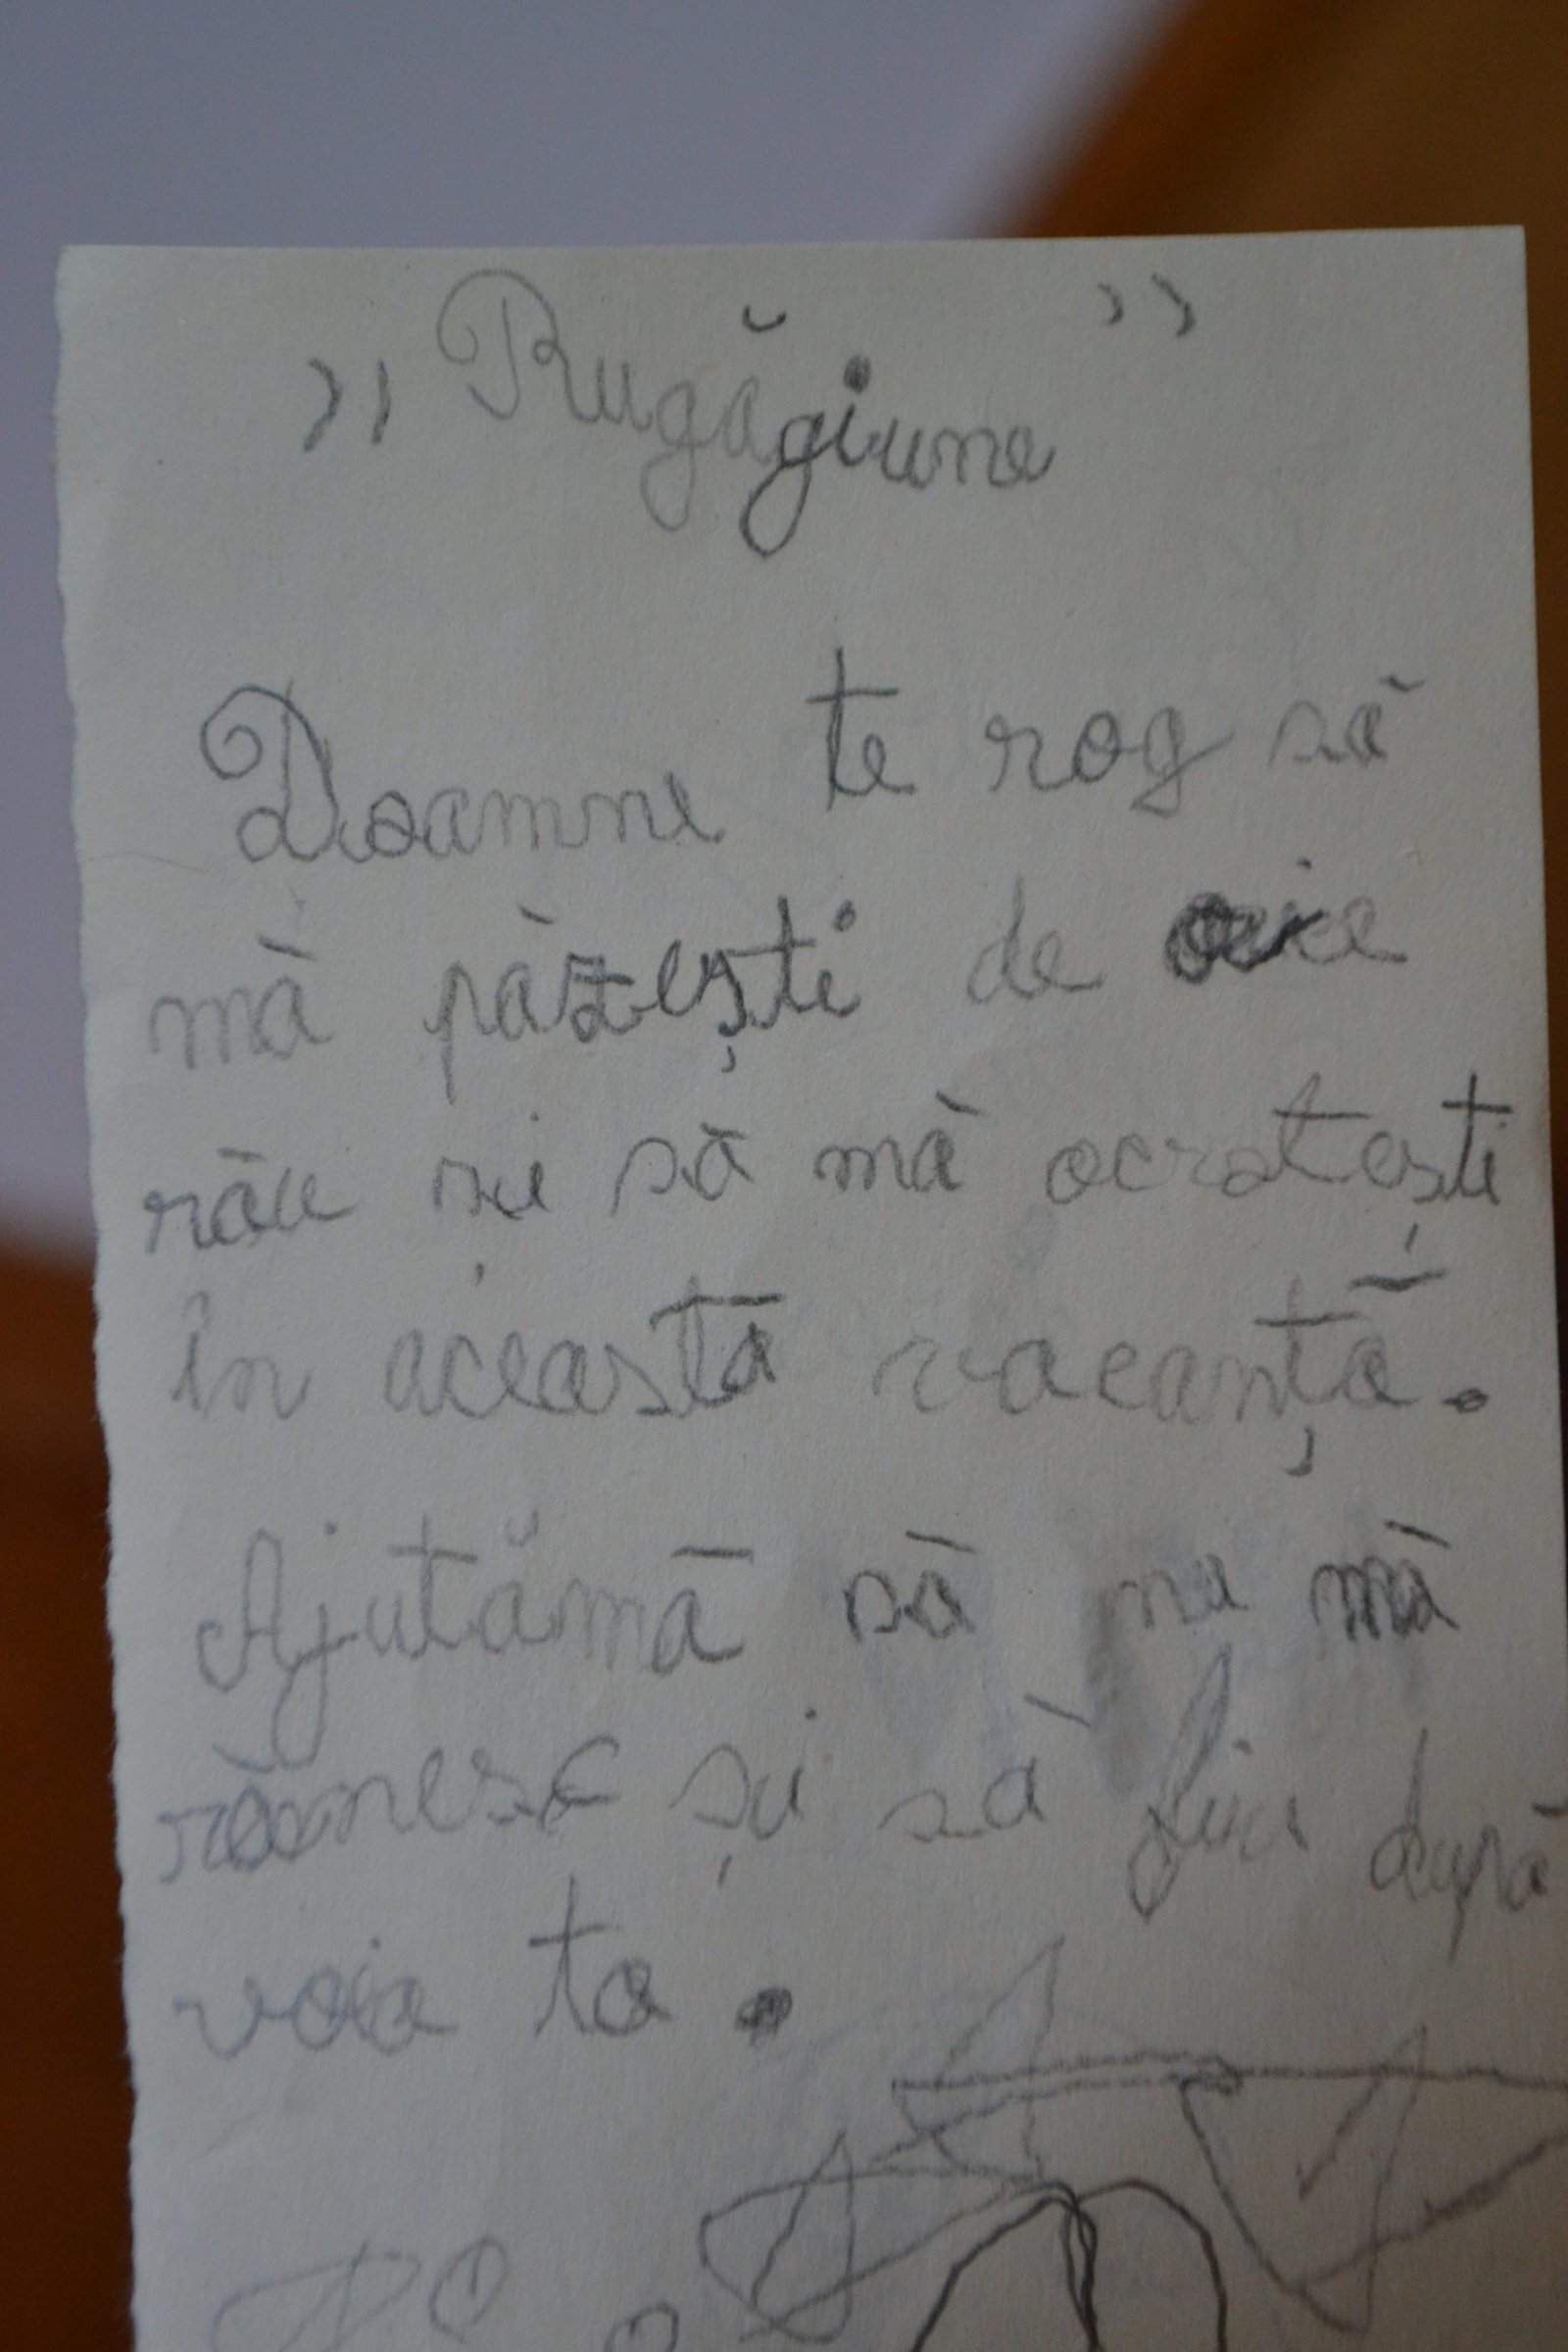 „Rugăgiune”
Doamne te rog să
mă păzești de orice
rău și să mă ocrotești
în această vacanță.
Ajutămă să nu mă
rănesc și să fiu după
voia ta.